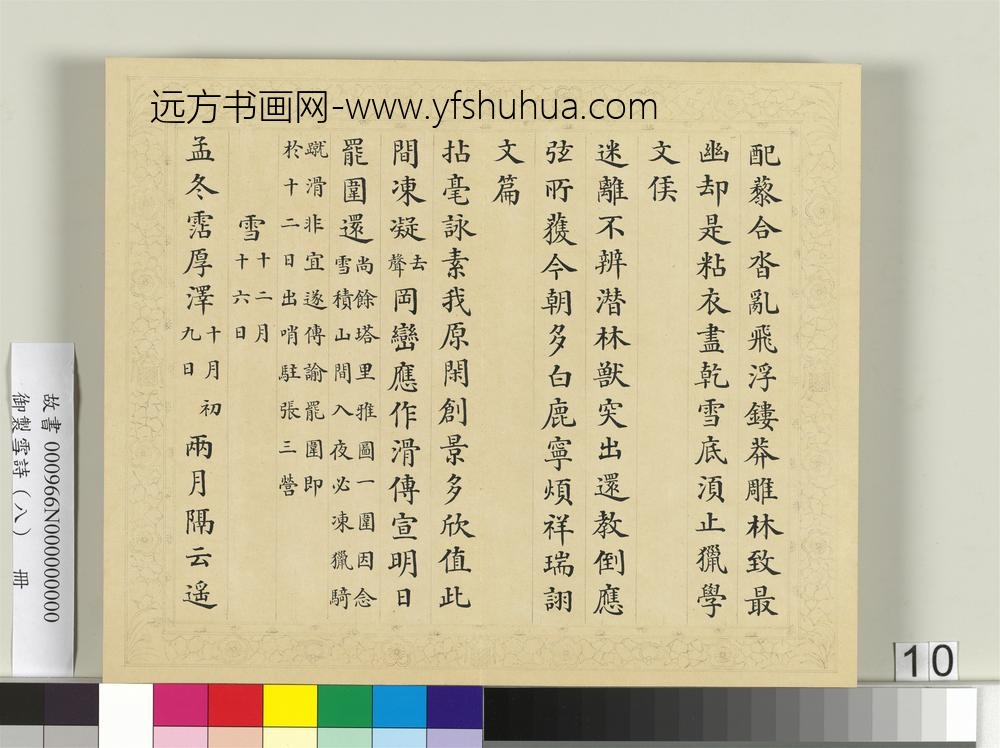 远方书画网-www.yfshuhua.com
配藜合沓亂飛浮鏤莽雕林致最
幽却是粘衣盡乾雪底湏止獵學
文侯
迷離不辨潛林獸突出還教倒應
弦所獲今朝多白鹿寧煩祥瑞詡
文篇
拈毫詠素我原閑創景多欣值此
間凍凝去聲岡巒應作滑傳宣明日
罷圍還尚餘塔里雅圖一圍因念雪積山間入夜必凍獵騎
蹴滑非宜遂傳諭罷圍即於十二日出哨駐張三營
雪十二月十六日
孟冬霑厚澤十月初九日兩月隔云遙
故書 000966N000000000
御製雪詩(八) 冊
10